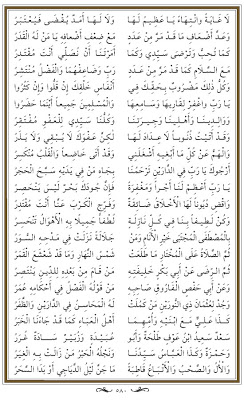 لَا غَايَةً وَانْتِهَاءً يَا عَظِيمُ لَهَا وَلَا لَهَا أَمَدٌ يُقْضَى فَيُعْتَبَرُ
وَعَدَّ أَضْعَافِ مَا قَدْ مَرَّ مِنْ عَدَدٍ مَعَ ضِعْفِ أَضْعَافِهِ يَا مَنْ لَهُ الْقَدَرُ
كَمَا تُحِبُّ وَتَرْضَى سَيِّدِي وَكَمَا أَمَرْتَنَا أَنْ نُصَلِّيَ أَنْتَ مُقْتَدِرُ
مَعَ السَّلَامِ كَمَا قَدْ مَرَّ مِنْ عَدَدٍ رَبِّ وَضَاعِفْهُمَا وَالْفَضْلُ مُنْتَشِرُ
وَكُلُّ ذَلِكَ مَضْرُوبٌ بِحَقِّكَ فِي أَنْفَاسِ خَلْقِكَ إِنْ قَلُّوا وَإِنْ كَثُرُوا
يَا رَبِّ وَاغْفِرْ لِقَارِيهَا وَسَامِعِهَا وَالْمُسْلِمِينَ جَمِيعاً أَيْنَمَا حَضَرُوا
وَوَالِدِينَا وَأَهْلِينَا وَجِيرَتِنَا وَكُلُّنَا سَيِّدِي لِلْعَفْوِ مُفْتَقِرُ
وَقَدْ أَتَيْتُ ذُنُوباً لَا عِدَادَ لَهَا لَكِنَّ عَفْوَكَ لَا يُبْقِي وَلَا يَذَرُ
وَالْهَمُّ عَنْ كُلِّ مَا أَبْغِيهِ أَشْغَلَنِي وَقَدْ أَتَى خَاضِعاً وَالْقَلْبُ مُنْكَسِرُ
أَرْجُوكَ يَا رَبِّ فِي الدَّارَيْنِ تَرْحَمُنَا بِجَاهِ مَنْ فِي يَدَيْهِ سَبَّحَ الْحَجَرُ
يَا رَبِّ أَعْظِمْ لَنَا أَجْراً وَمَغْفِرَةً فَإِنَّ جُودَكَ بَحْرٌ لَيْسَ يَنْحَصِرُ
وَاقْضِ دُيُوناً لَهَا الْأَخْلَاقُ ضَائِقَةٌ وَفَرِّجِ الْكَرْبَ عَنَّا أَنْتَ مُقْتَدِرُ
وَكُنْ لَطِيفاً بِنَا فِي كُلِّ نَازِلَةٍ لُطْفاً جَمِيلاً بِهِ الْأَهْوَالُ تَنْحَسِرُ
بِالْمُصْطَفَى الْمُجْتَبَى خَيْرِ الْأَنَامِ وَمَنْ جَلَالَةً نَزَلَتْ فِي مَدْحِهِ السُّوَرُ
ثُمَّ الصَّلَاةُ عَلَى الْمُخْتَارِ مَا طَلَعَتْ شَمْسُ النَّهَارِ وَمَا قَدْ شَعْشَعَ الْقَمَرُ
ثُمَّ الرِّضَى عَنْ أَبِي بَكْرٍ خَلِيفَتِهِ مَنْ قَامَ مِنْ بَعْدِهِ لِلدِّينِ يَنْتَصِرُ
وَعَنْ أَبِي حَفْصٍ الْفَارُوقِ صَاحِبِهِ مَنْ قَوْلُهُ الْفَصْلُ فِي أَحْكَامِهِ عُمَرُ
وَجُدْ لِعُثْمَانَ ذِي النُّورَيْنِ مَنْ كَمُلَتْ لَهُ الْمَحَاسِنُ فِي الدَّارَيْنِ وَالظَّفَرُ
كَذَا عَلِيٌّ مَعَ ابْنَيْهِ وَأُمِّهِمَا أَهْلُ الْعَبَاءِ كَمَا قَدْ جَاءَنَا الْخَبَرُ
سَعْدٌ سَعِيدُ ابْنُ عَوْفٍ طَلْحَةٌ وَأَبُو عُبَيْدَةٍ وَزُبَيْرٌ سَادَةٌ غُرَرُ
وَحَمْزَةٌ وَكَذَا الْعَبَّاسُ سَيِّدُنَا وَنَجْلُهُ الْحَبْرُ مَنْ زَالَتْ بِهِ الْغِيَرُ
وَالْآلُ وَالصَّحْبُ وَالْأَتْبَاعُ قَاطِبَةً مَا جَنَّ لَيْلُ الدَّيَاجِي أَوْ بَدَا السَّحَرُ
٥٨٠